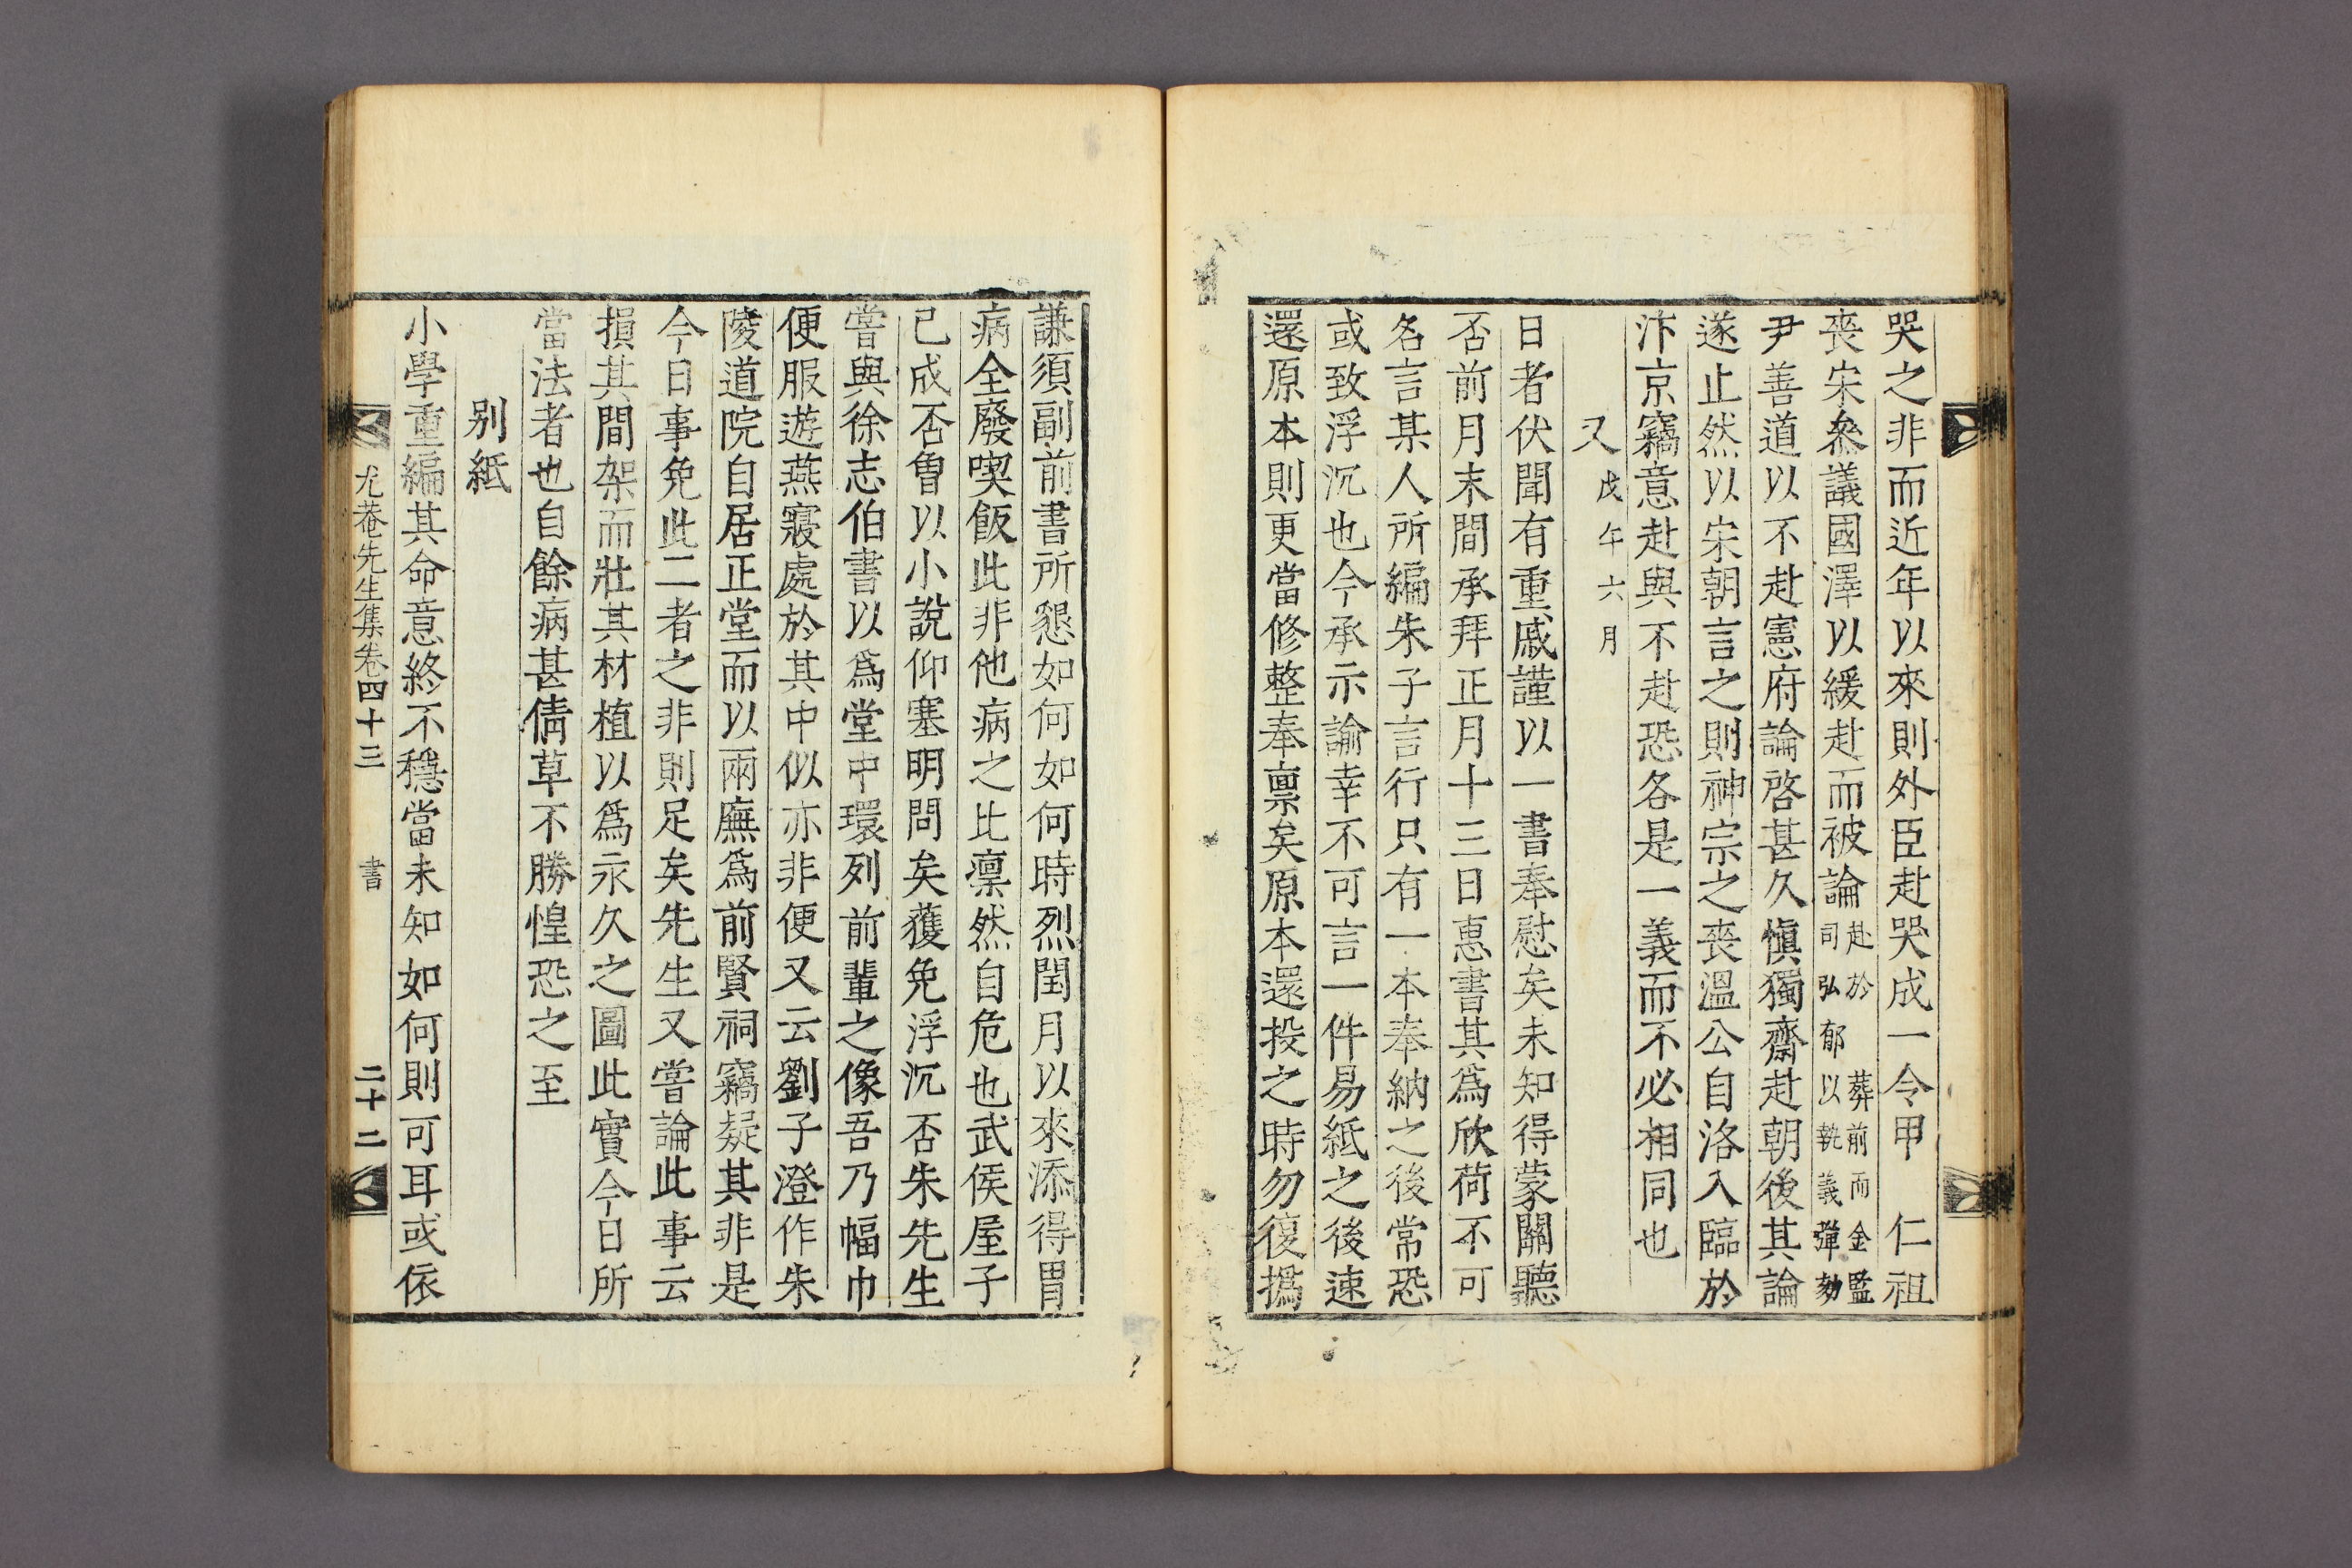 哭之非而近年以來則外臣赴哭成一令甲 仁祖
喪宋叅議國澤以緩赴而被論赴於葬前而金監司弘郁以執義彈劾
尹善道以不赴憲府論啓甚久愼獨齋赴朝後其論
遂止然以宋朝言之則神宗之喪溫公自洛入臨於
汴京竊意赴與不赴恐各是一義而不必相同也
又戊午六月
日者伏聞有重戚謹以一書奉慰矣未知得蒙關聽
否前月末間承拜正月十三日惠書其爲欣荷不可
名言某人所編朱子言行只有一本奉納之後常恐
或致浮沉也今承示諭幸不可言一件易紙之後速
還原本則更當修整奉禀矣原本還投之時勿復撝
謙須副前書所懇如何如何時烈閏月以來添得胃
病全廢喫飯此非他病之比凜然自危也武侯屋子
已成否曾以小說仰塞明問矣獲免浮沉否朱先生
嘗與徐志伯書以爲堂中環列前輩之像吾乃幅巾
便服遊燕寢處於其中似亦非便又云劉子澄作朱
陵道院自居正堂而以兩廡爲前賢祠竊疑其非是
今日事免此二者之非則足矣先生又嘗論此事云
損其間架而壯其材植以爲永久之圖此實今日所
當法者也自餘病甚倩草不勝惶恐之至
别紙
小學重編其命意終不穩當未知如何則可耳或依
尤菴先生集卷四十三 書 二十二